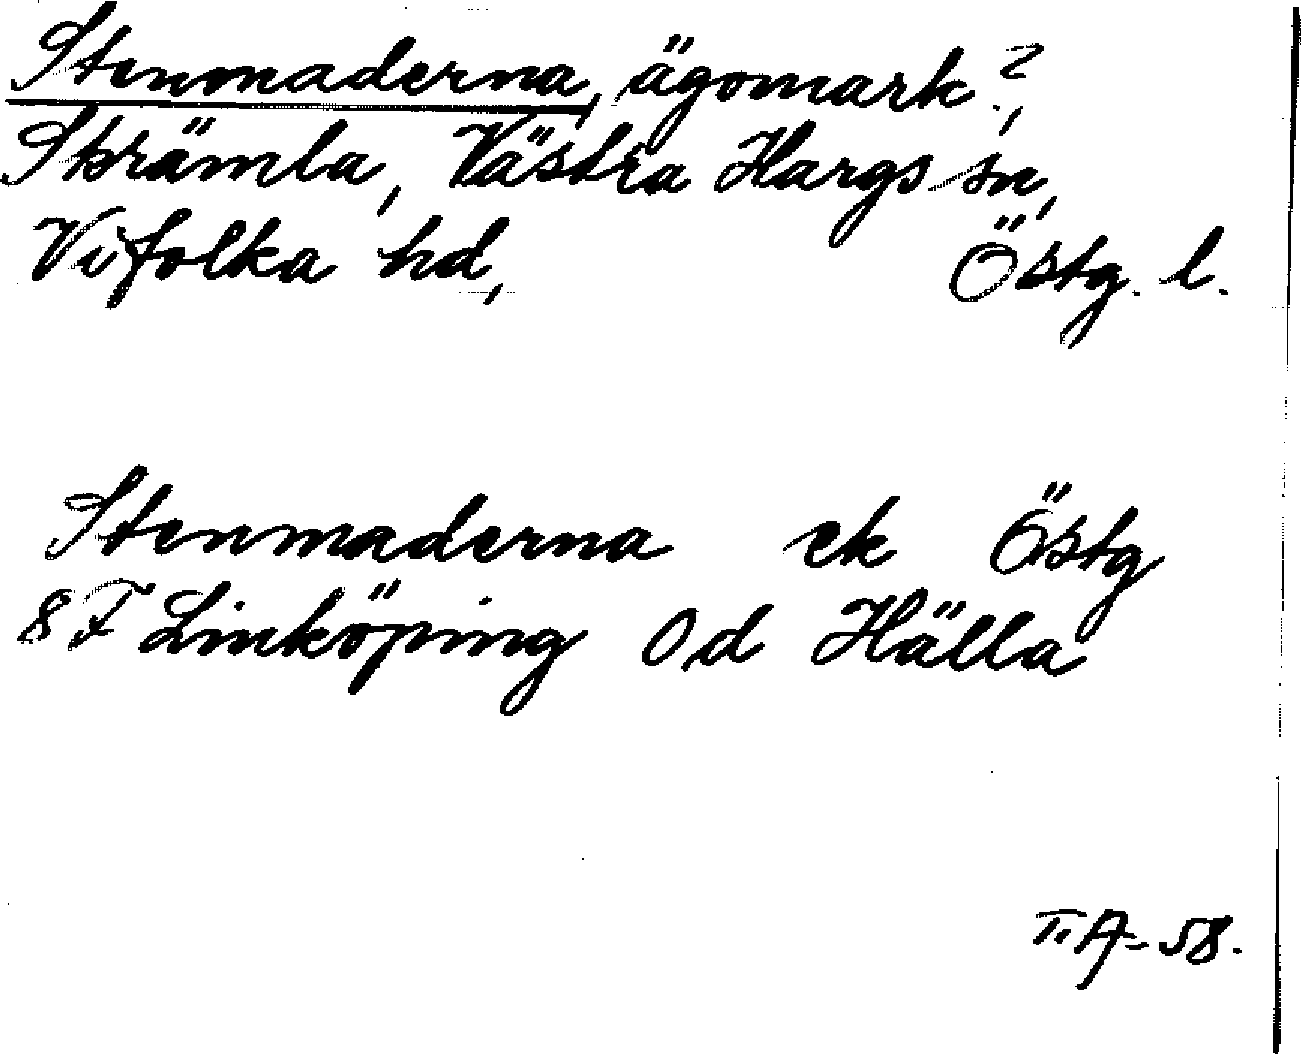 Stenmaderna, ägomark?,
Skrämla, Västra Hargs sn,
Vifolka hd, Östg. l.
Stenmaderna ek Östg
8F Linköping Od Hälla
T.A-58.